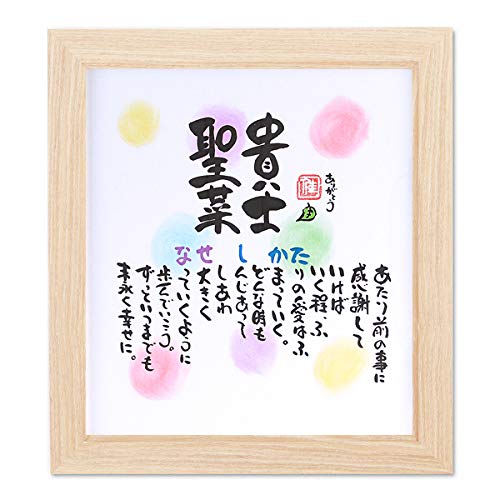 貴士
聖菜
ありがとう
あたり前の事に
感謝して
いけば
いく程ふ
たりの愛はふ
かまっていく。
どんな時も
しんじあって
しあわ
せ大きく
なっていくように
歩んでいこう。
ずっといつまでも
末永く幸せに。